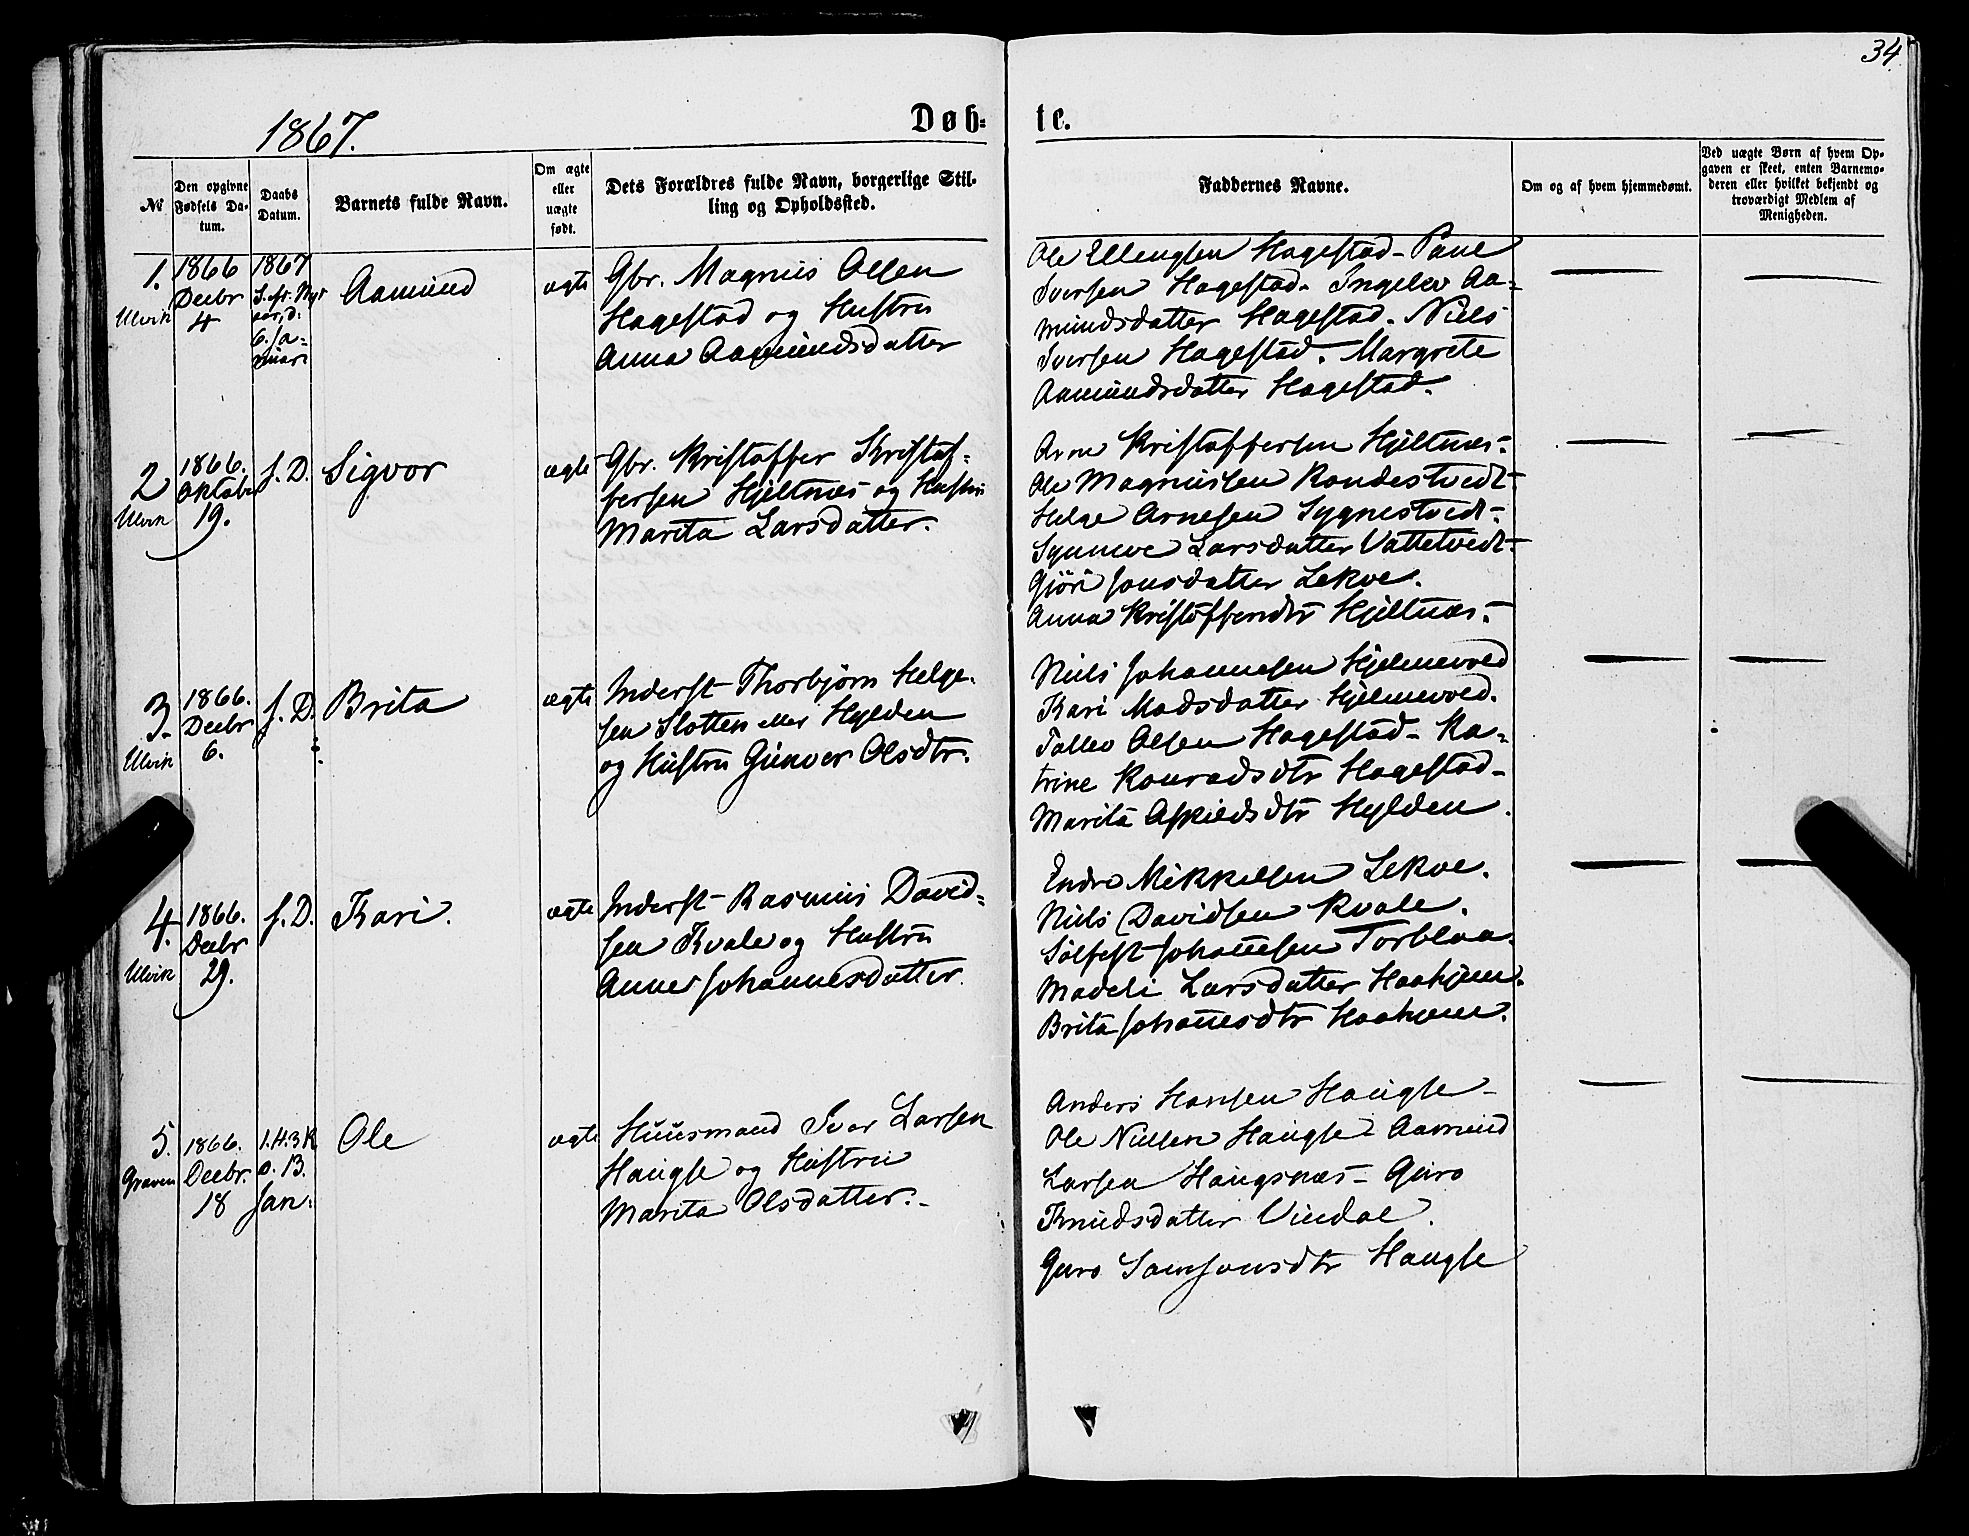 34
1867.
Døb- te.
No
Den opgivne Fødsels Datum.
Daabs Datum.
Barnets fulde Navn.
Om ægte eller uægte født.
Dets Forældres fulde Navn, borgerlige Stilling og Opholdssted.
Faddernes Navne.
Om og af hvem hjemmedømt.
Ved uægte Børn af hvem Opgaven er skeet, enten Barnemoderen eller hvilket bekjendt og troværdigt Medlem af Menigheden.
1.
Ulvik
1866
Decbr
4
1867
S. eft. Nyt
aar, d.
6. Ja-
nuar
Aamund
ægte
Gbr. Magnus Olsen
Hagestad og Hustru
Anna Aamundsdatter
Ole Ellengsen Hagestad - Paul
Iversen Hagestad. Ingelev Aa-
mundsdatter Hagestad. Niels
Iversen Hagestad. Margrete
Aamundsdatter Hagestad.
2
Ulvik
1866.
Oktober
19.
s. D.
Sigvor
ægte
Gbr. Kristoffer Kristof-
fersen Hjeltnes og Hustru
Marita Larsdatter.
Arne Kristoffersen Hjeltnæs-
Ole Magnussen Rondestvedt-
Helge Arnesen Sygnestvedt-
Synneve Larsdatter Vattetvedt-
Gjöri Jonsdatter Lekve.
Anna Kristoffersdtr Hjeltnæs-
3.
Ulvik
1866.
Decbr
6.
s. D.
Brita
ægte
Inderst Thorbjørn Helge-
sen Slotten eller Hylden
og Hustru Gunvor Olsdtr.
Niels Johannesen Hjelmevold
Kari Madsdatter Hjelmevold.
Tollev Olsen Hagestad - Ka-
trine Konradsdtr Hagestad -
Marita Askildsdtr Hylden.
4.
Ulvik
1866.
Decbr
29.
s. D.
Kari.
ægte
Inderst Rasmus David-
sen Kvale og Hustru
Anna Johannesdatter.
Endre Mikkelsen Lekve.
Niels Davidsen Kvale.
Sølfest Johannesen Torblaa.
Madeli Larsdatter Haahjem.
Brita Johannesdtr Haahjem.
5.
Graven
1866.
Decbr.
18
1. H. 3 K
o. 13.
Jan.
Ole
ægte
Huusmand Ivar Larsen
Haugse og Hustru
Marita Olsdatter. -
Anders Hansen Haugse -
Ole Nielsen Haugse - Aamund
Larsen Haugsnæs - Guro
Knudsdatter Vindal.
Guro Samsonsdtr Haugse